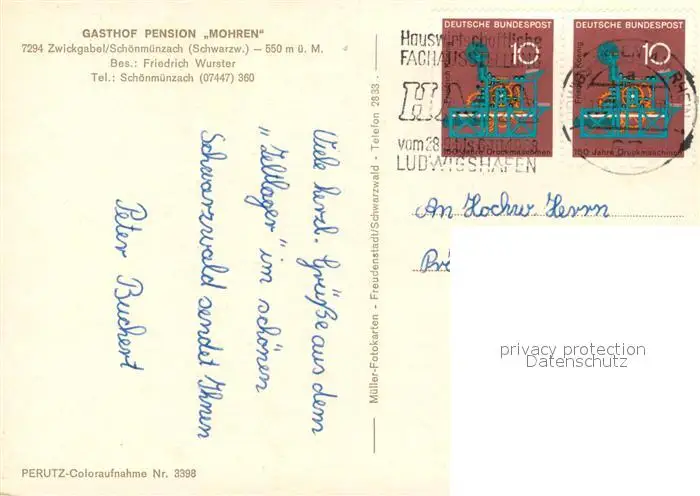 GASTHOF PENSION „MOHREN"
7294 Zwickgabel/Schönmünzach (Schwarzw.) — 550 m ü. M.
Bes.: Friedrich Wurster
Tel.: Schönmünzach (07447) 360
Viele herzl. Grüße aus dem
"Zeltlager" im schönen
Schwarzwald sendet Ihnen
Peter Buchert
PERUTZ-Coloraufnahme Nr. 3398
Müller-Fotokarten - Freudenstadt/Schwarzwald - Telefon 2833
Hauswirtschaftliche
FACHAUSSTELLUNG
LUDWIGSHAFEN
DEUTSCHE BUNDESPOST
10
Friedrich Koenig
150 Jahre Druckmaschinen
DEUTSCHE BUNDESPOST
10
Friedrich Koenig
150 Jahre Druckmaschinen
An Hochw. Herrn
privacy protection
Datenschutz